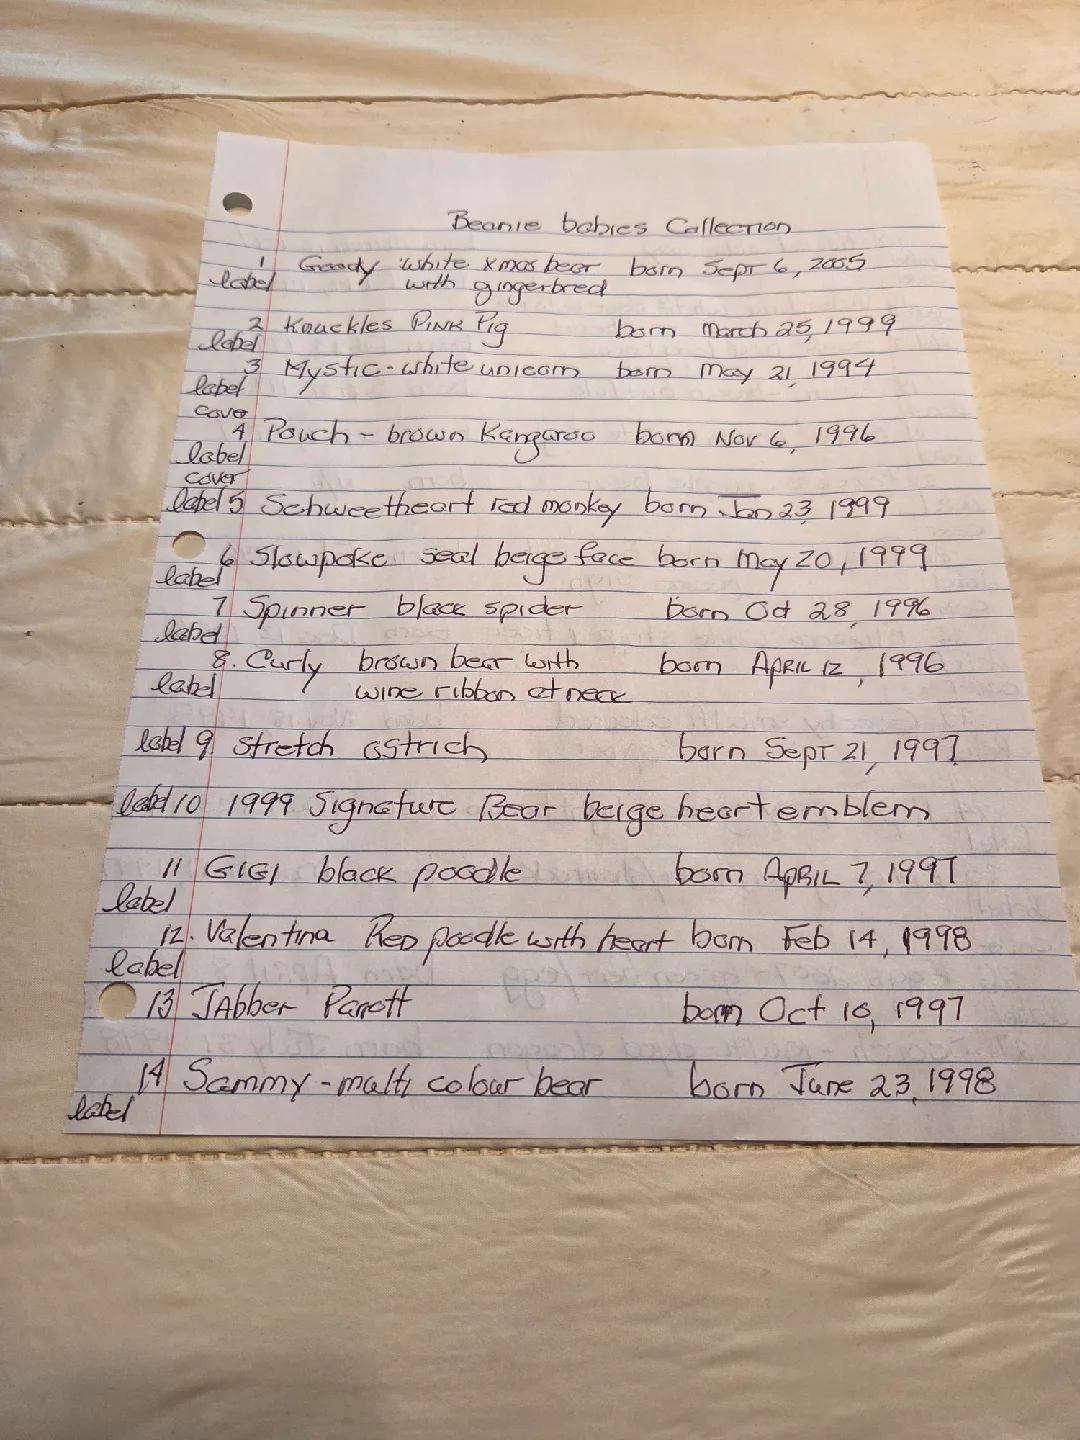 Beanie babies Collection
1 Goody white xmas bear born Sept 6, 2005
label with gingerbred
2 Knuckles Pink Pig born March 25, 1999
label
3 Mystic - white unicorn born May 21, 1994
label
cover
4 Pouch - brown Kangaroo born Nov 6, 1996
label
cover
label 5 Schweetheart red monkey born Jan 23, 1999
6 Slowpoke seal beige face born May 20, 1999
label
7 Spinner black spider born Oct 28, 1996
label
8. Curly brown bear with born April 12, 1996
label wine ribbon at neck
label 9 Stretch ostrich born Sept 21, 1997
label 10 1999 Signature Bear beige heart emblem
11 GIGI black poodle born April 7, 1997
label
12. Valentina Red poodle with heart born Feb 14, 1998
label
13 JAbber Parott born Oct 10, 1997
14 Sammy - multi colour bear born June 23, 1998
label